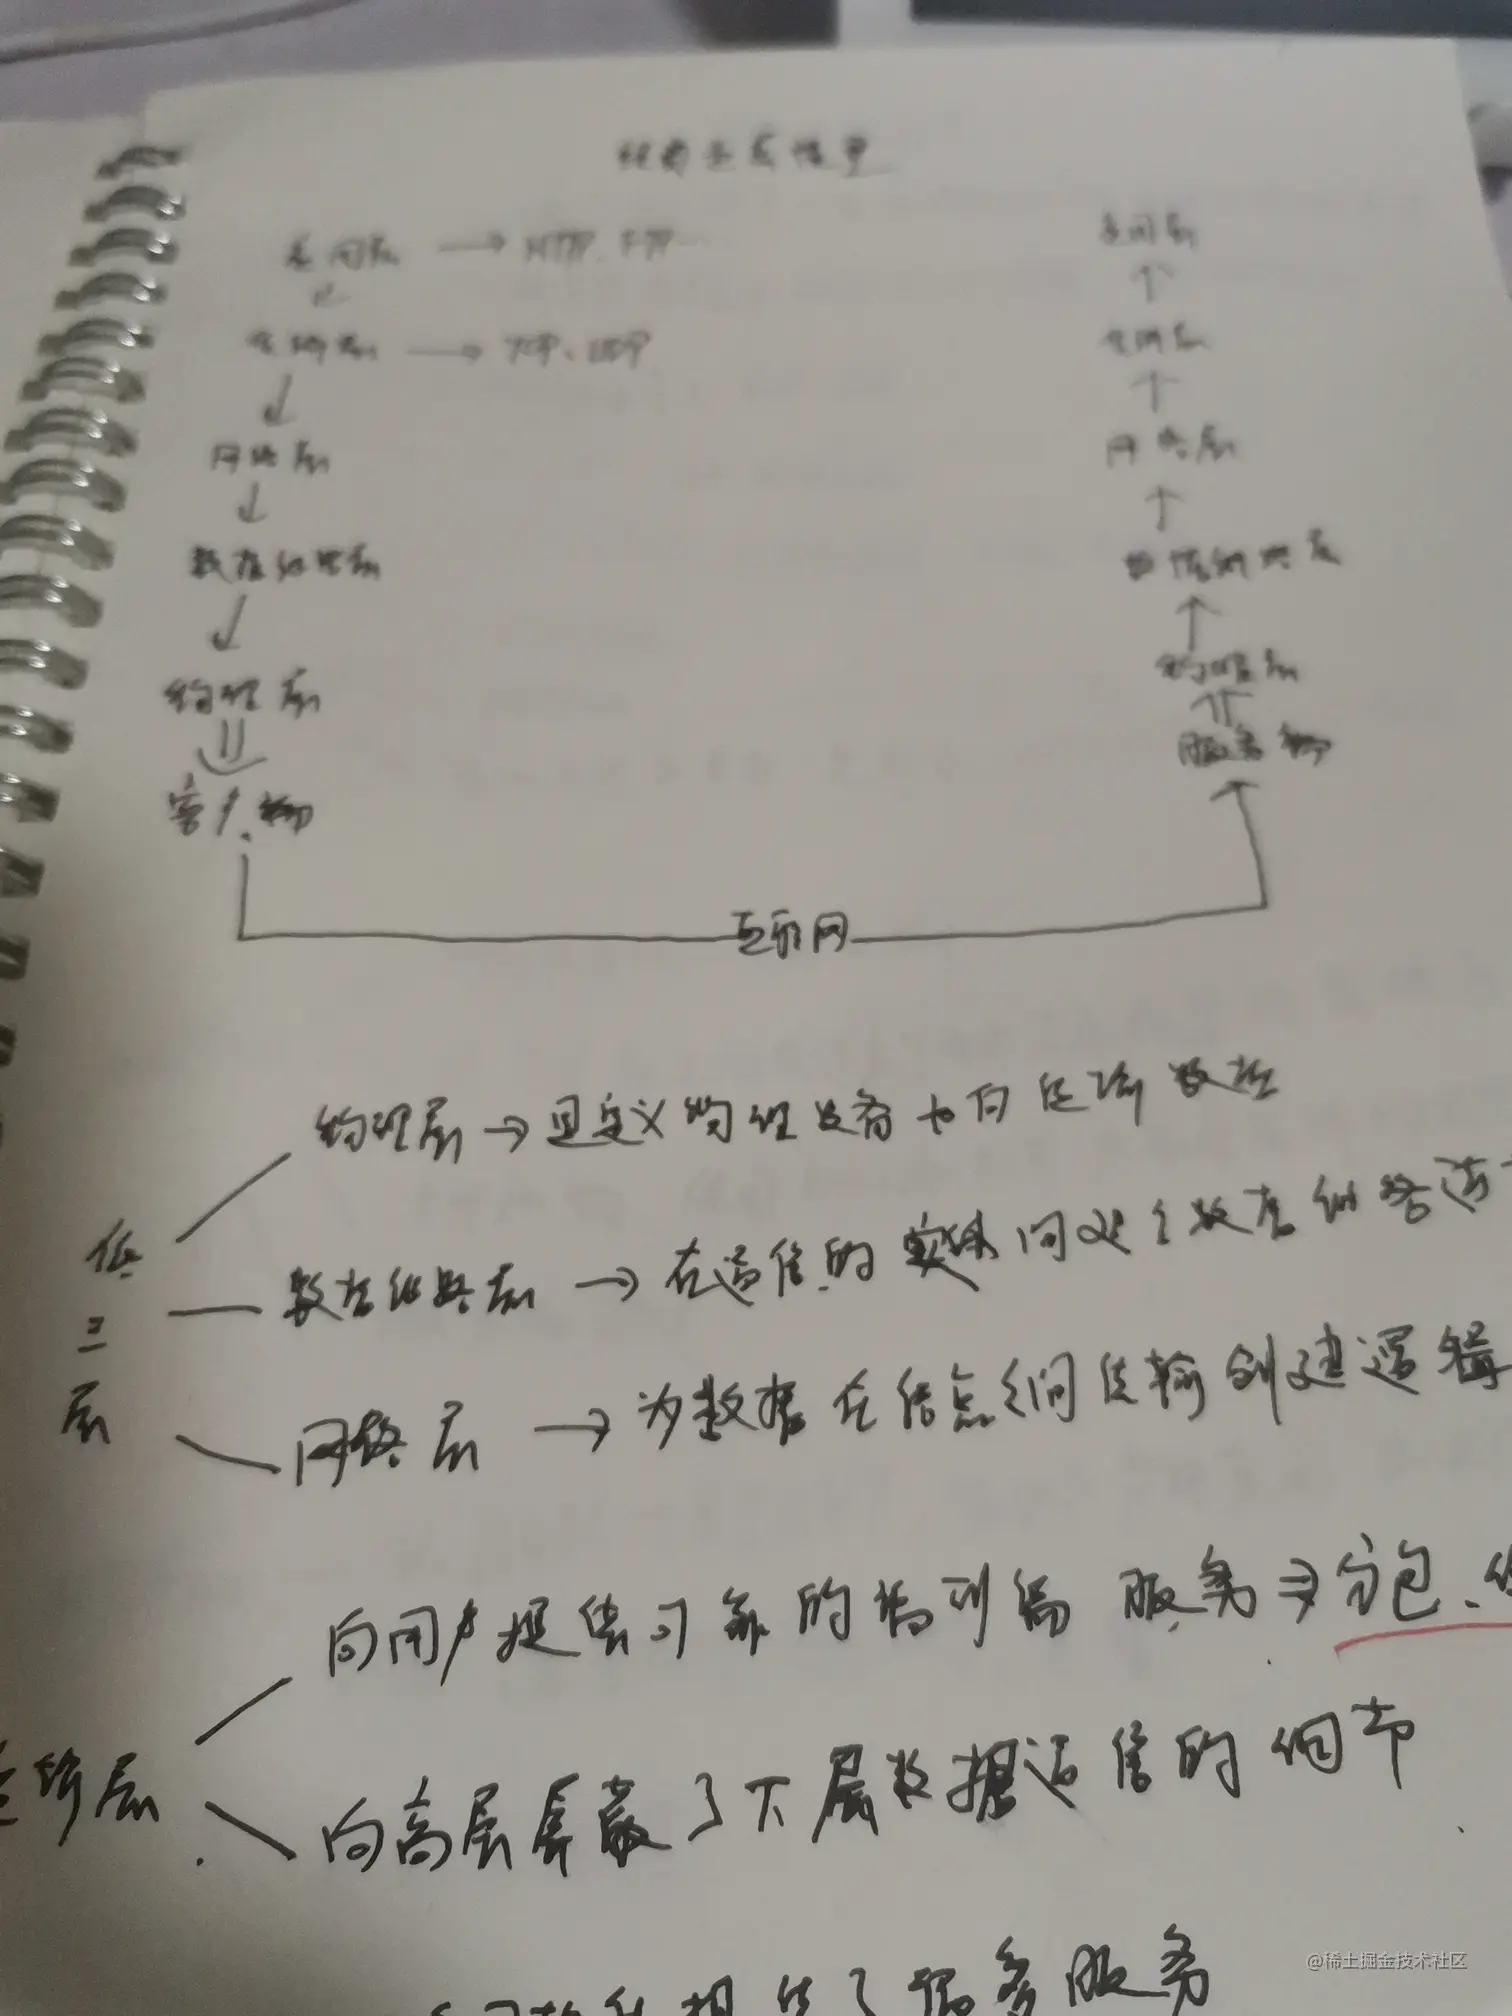 经典五层模型
应用层 → HTTP、FTP...
应用层
↓
↑
传输层 → TCP、UDP
传输层
↓
↑
网络层
网络层
↓
↑
数据链路层
数据链路层
↓
↑
物理层
物理层
⇓
⇑
客户端
服务端
互联网
低三层
物理层 → 定义物理设备如何传输数据
数据链路层 → 在通信的实体间建立数据链路
网络层 → 为数据在结点之间传输创建逻辑
传输层
向用户提供可靠的端到端服务 → 分包、
向高层屏蔽了下层数据通信的细节
服务
@稀土掘金技术社区